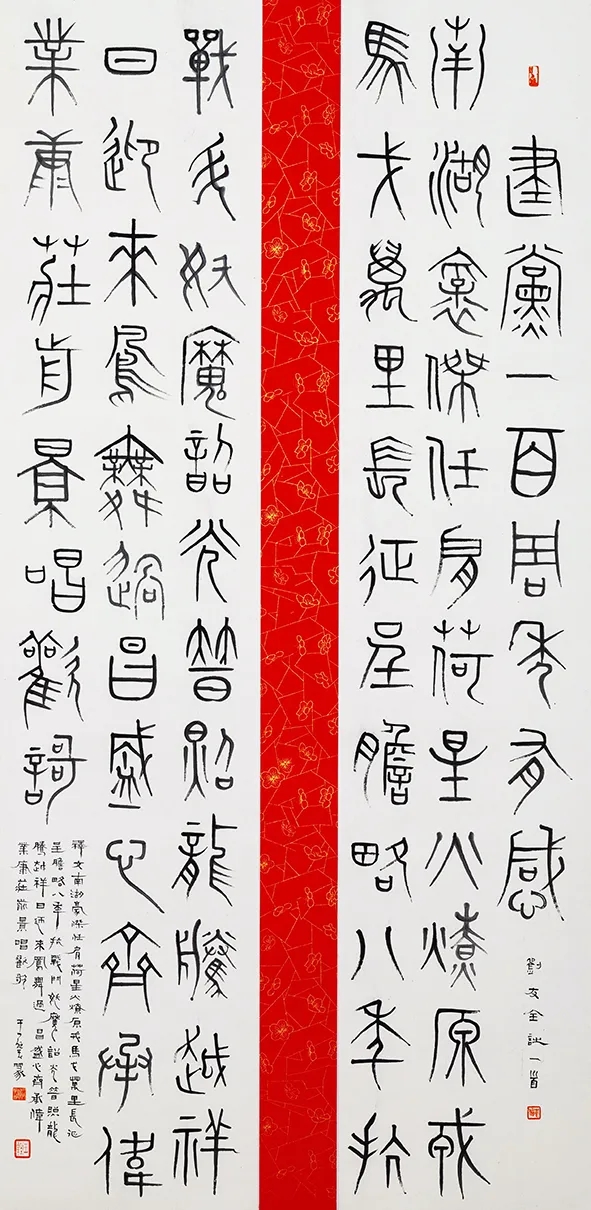 建黨一百周年有感
劉友全詩一首
南湖豪傑任肩荷星火燎原戎
馬戈萬里長征呈膽略八年抗
戰鬥妖魔韶光普照龍騰越祥
日迎來鳳舞過昌盛心齊承偉
業康莊前景唱歡歌
釋文南湖豪傑任肩荷星火燎原戎馬戈萬里長征
呈膽略八年抗戰鬥妖魔韶光普照龍
騰越祥日迎來鳳舞過昌盛心齊承偉
業康莊前景唱歡歌